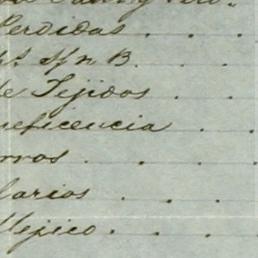 Perdidas . . .
S/n B. . .
de Tejidos . . .
neficencia . . .
rros . . . .
larios . . .
Mejico . . . .